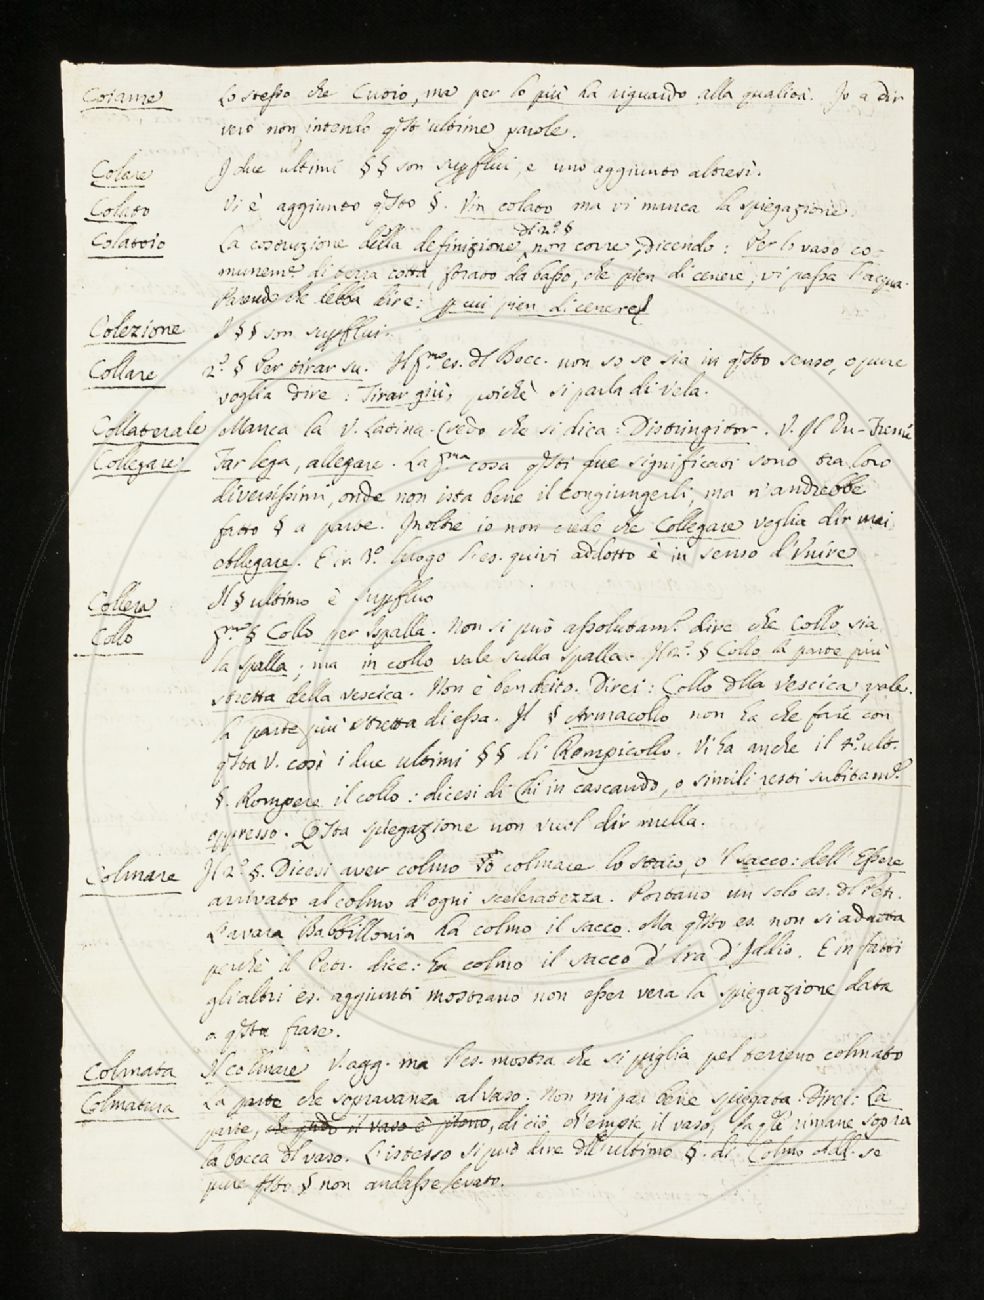 Coiame Lo stesso che Cuoio, ma per lo più ha riguardo alla qualità. Io a dir
vero non intendo qste ultime parole.
Colare I due ultimi §§ son supflui, e uno aggiunto altresì.
Colato Vi è aggiunto qsto §. Vin colato ma vi manca la spiegazione.
Colatoio La costruzione della definizione del 2.º § non corre, dicendo: Per lo vaso co-
munem.e di terra cotta, forato da basso, che pien di cenere, vi passa l'acqua.
che debba dire: p cui pien di cenere
Colezione I §§ son supflui.
Collare 2.º § Per tirar su. Il pmo es. dl Bocc. non so se sia in qsto senso, o pure
voglia dire: Tirar giù, poichè si parla di vela.
Collaterale Manca la V. Latina. Credo che si dica: Distringitor. V. Il Du-Frene
Collegare Far lega, allegare. La pma cosa qsti due significati sono tra loro
diversissimi, onde non ista bene il congiungerli, ma n'andrebbe
fatto § a parte. Inoltre io non credo che Collegare voglia dir mai
allegare. E in 3.º luogo l'es. quivi addotto è in senso d'Unire
Collera Il § ultimo è supfluo
Collo pmo § Collo per Ispalla. Non si può assolutam.e dire che Collo sia
la spalla; ma in collo vale sulla spalla. Il 2.º § Collo la parte più
stretta della vescica. Non è ben detto. Direi: Collo dlla Vescica, vale
la parte più stretta di essa. Il § Armacollo non ha che fare con
qsta V. così i due ultimi §§ di Rompicollo. Vi ha anche il 4.º ult.
§. Rompere il collo: dicesi di Chi in cascando, o simili resti subitam.e
oppresso. Qsta spiegazione non vuol dir nulla.
Colmare Il 2.º §. Dicesi aver colmo o colmare lo staio, o 'l sacco: dell' Essere
arrivato al colmo d'ogni sceleratezza. Portano un solo es. dl Petr.
L'avara Babbillonia ha colmo il sacco. Ma qsto es. non si adatta
perchè il Petr. dice: ha colmo il sacco d'ira d'Iddio. E in fatti
gli altri es. aggiunti mostrano non esser vera la spiegazione data
a qsta frase.
Colmata Il colmare V. agg. ma l'es. mostra che si piglia pel terreno colmato
Colmatura La parte che sopravanza al vaso. Non mi par bene spiegata. Direi: La
parte, di ciò, ch'empie il vaso, la qle rimane sopra
la bocca dl vaso. L'istesso si può dire dll'ultimo §. di Colmo add. se
pure qsto § non andasse levato.